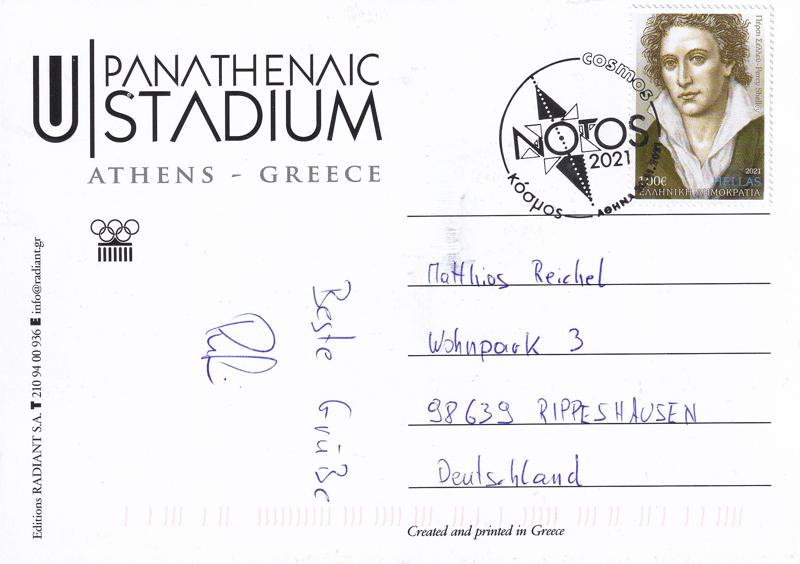 PANATHENAIC
STADIUM
ATHENS - GREECE
Editions RADIANT S.A. T 210 94 00 936 E info@radiant.gr
Beste Grüße
cosmos
NOTOS
2021
κόσμος
ΑΘΗΝΑ
Πέρσι Σέλλεϋ - Percy Shelley
2021
1,90€ HELLAS
ΕΛΛΗΝΙΚΗ ΔΗΜΟΚΡΑΤΙΑ
Matthias Reichel
Wohnpark 3
98639 RIPPESHAUSEN
Deutschland
Created and printed in Greece